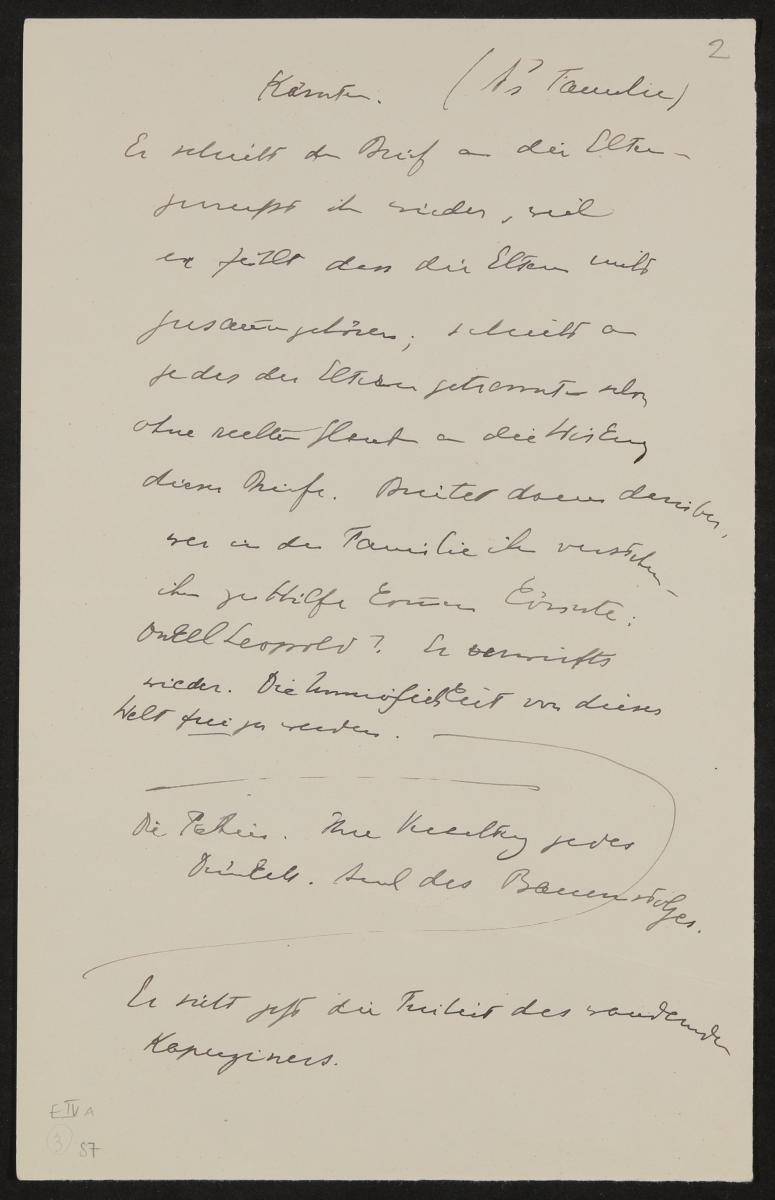 2
Kärnten. (A's Familie)
Er schreibt den Brief an die Eltern –
zerreisst ihn wieder, weil
er fühlt dass die Eltern nicht
zusammengehören; schreibt an
jedes der Eltern getrennt schon
ohne rechten Glauben an die Wirkung
dieser Briefe. Breitet darüber,
wer in der Familie ihn verstehen –
ihm zu Hilfe kommen könnte:
Onkel Leopold? Er verwirfts
wieder. Die Unmöglichkeit von dieser
Welt frei zu werden.
Die Patin. Ihre Verachtung jedes
Dünkels. Auch des Bauernstolzes.
Er sieht jetzt die Freiheit des wandernden
Kapuziners.
E IV A
3 87